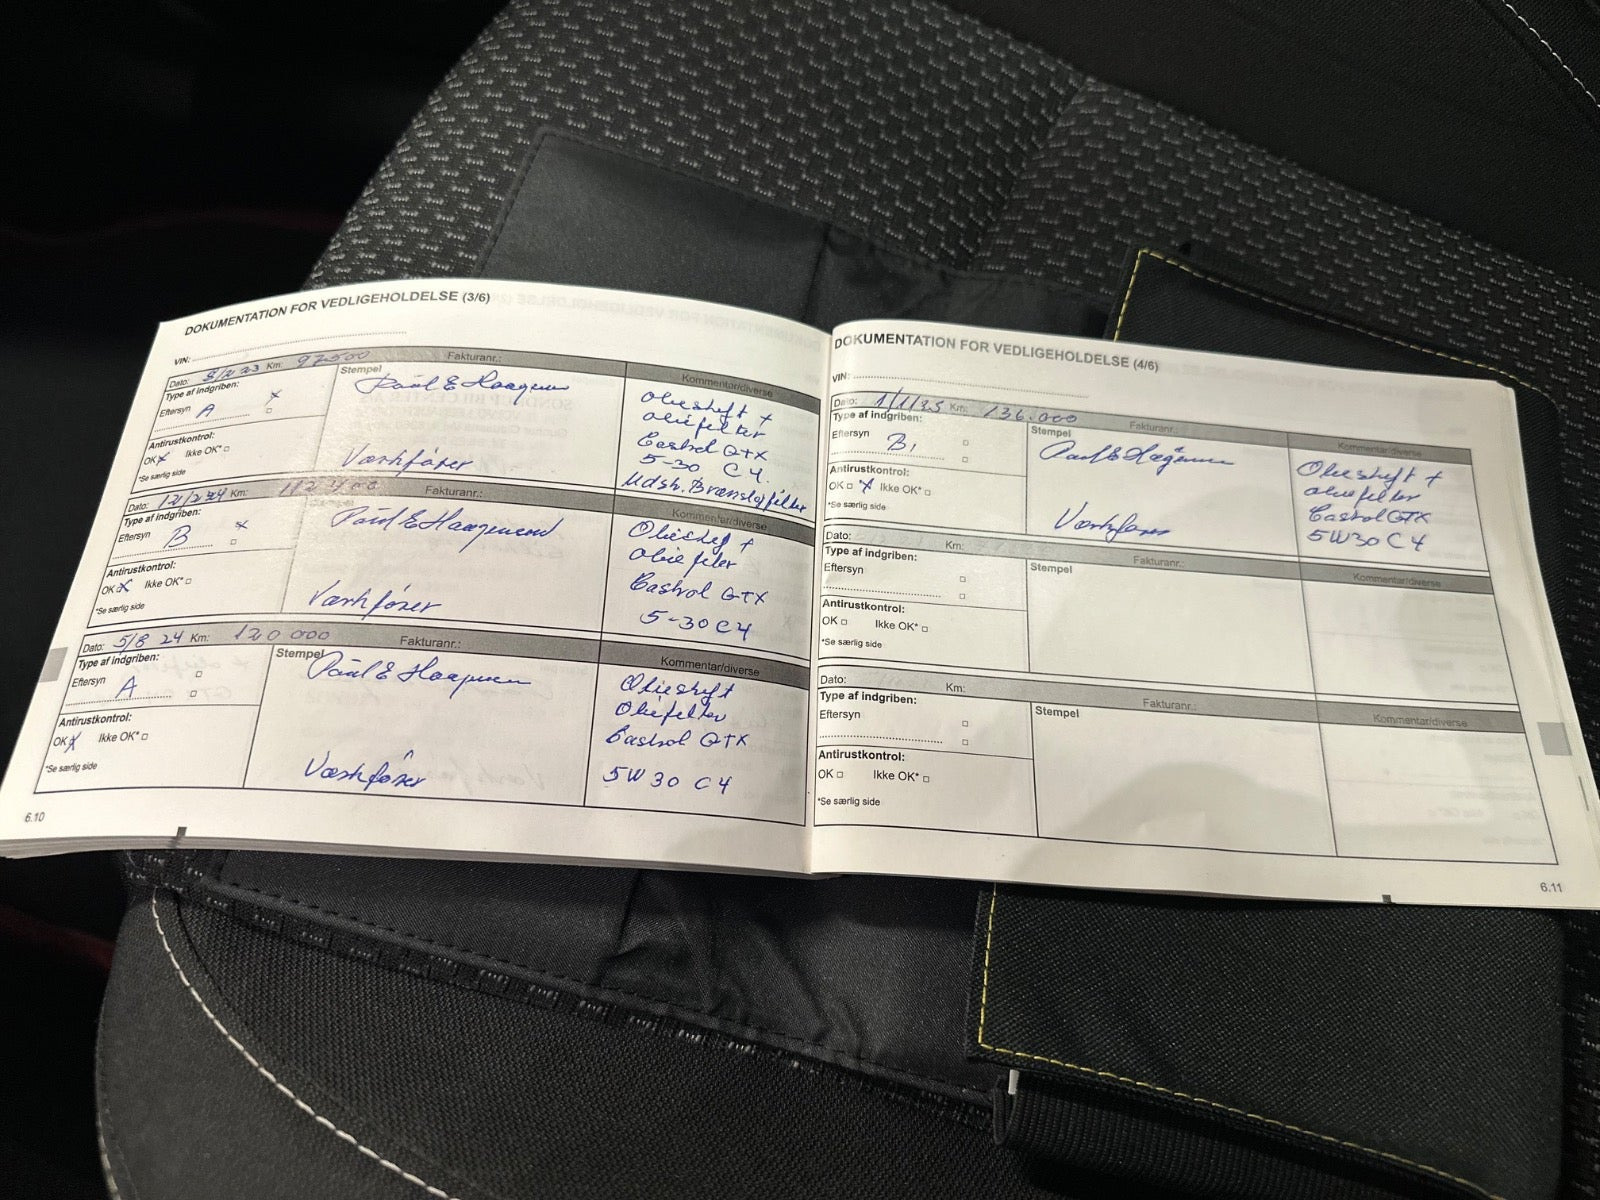 DOKUMENTATION FOR VEDLIGEHOLDELSE (3/6)
VIN:
Dato: 8/2 23 Km: 97500 Fakturanr.:
Type af indgriben:
Eftersyn A
Antirustkontrol:
OK Ikke OK*
*Se særlig side
Stempel
Poul E Haagensen
Værkfører
Kommentar/diverse
Olieskift +
oliefilter
Castrol GTX
5-30 C4.
Udsk. Brændstoffilter
Dato: 12/2 24 Km: 112400 Fakturanr.:
Type af indgriben:
Eftersyn B
Antirustkontrol:
OK Ikke OK*
*Se særlig side
Stempel
Poul E Haagensen
Værkfører
Kommentar/diverse
Olieskift +
oliefilter
Castrol GTX
5-30 C4
Dato: 5/8 24 Km: 120 000 Fakturanr.:
Type af indgriben:
Eftersyn A
Antirustkontrol:
OK Ikke OK*
*Se særlig side
Stempel
Poul E Haagensen
Værkfører
Kommentar/diverse
Olieskift
Oliefilter
Castrol GTX
5W30 C4
6.10
DOKUMENTATION FOR VEDLIGEHOLDELSE (4/6)
VIN:
Dato: 1/1/25 Km: 136.000 Fakturanr.:
Type af indgriben:
Eftersyn B,
Antirustkontrol:
OK Ikke OK*
*Se særlig side
Stempel
Poul E Haagensen
Værkfører
Kommentar/diverse
Olieskift +
oliefilter
Castrol GTX
5W30 C4
Dato: Km: Fakturanr.:
Type af indgriben:
Eftersyn
Antirustkontrol:
OK Ikke OK*
*Se særlig side
Stempel
Kommentar/diverse
Dato: Km: Fakturanr.:
Type af indgriben:
Eftersyn
Antirustkontrol:
OK Ikke OK*
*Se særlig side
Stempel
Kommentar/diverse
6.11